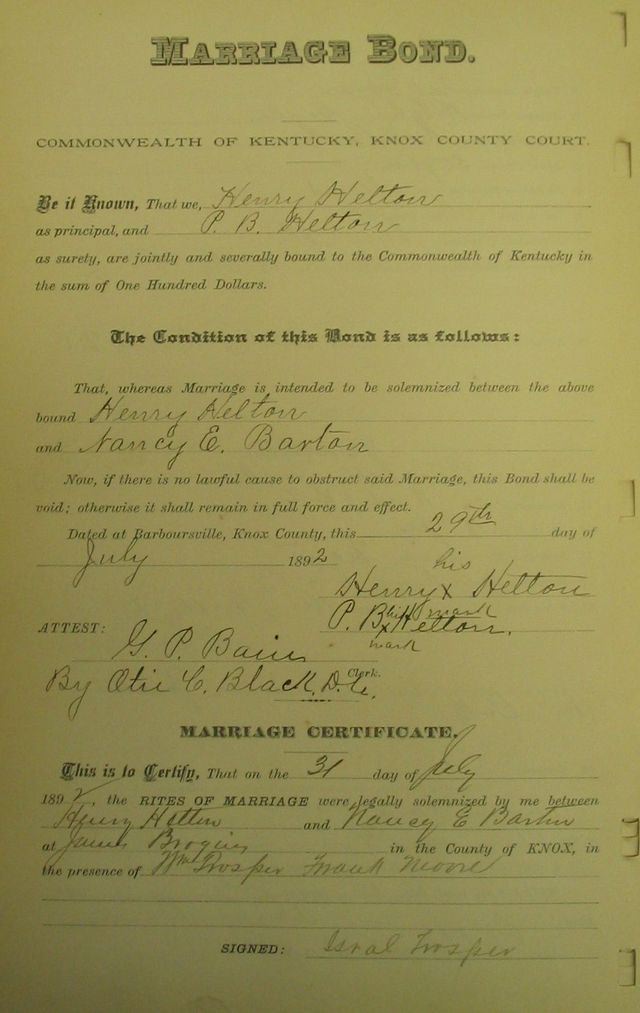 MARRIAGE BOND.
COMMONWEALTH OF KENTUCKY, KNOX COUNTY COURT.
Be it Known, That we, Henry Helton
as principal, and P. B. Helton
as surety, are jointly and severally bound to the Commonwealth of Kentucky in
the sum of One Hundred Dollars.
The Condition of this Bond is as follows:
That, whereas Marriage is intended to be solemnized between the above
bound Henry Helton
and Nancy E. Barton
Now, if there is no lawful cause to obstruct said Marriage, this Bond shall be
void; otherwise it shall remain in full force and effect.
Dated at Barboursville, Knox County, this 29th day of
July 1892
his
Henry x Helton
mark
his
P. B. x Helton.
mark
ATTEST:
G. P. Bain
Clerk.
By Otie C. Black, D.C.
MARRIAGE CERTIFICATE.
This is to Certify, That on the 31 day of July
1892, the RITES OF MARRIAGE were legally solemnized by me between
Henry Helton and Nancy E Barton
at James in the County of KNOX, in
the presence of Wm Prosper Frank Moore
SIGNED: